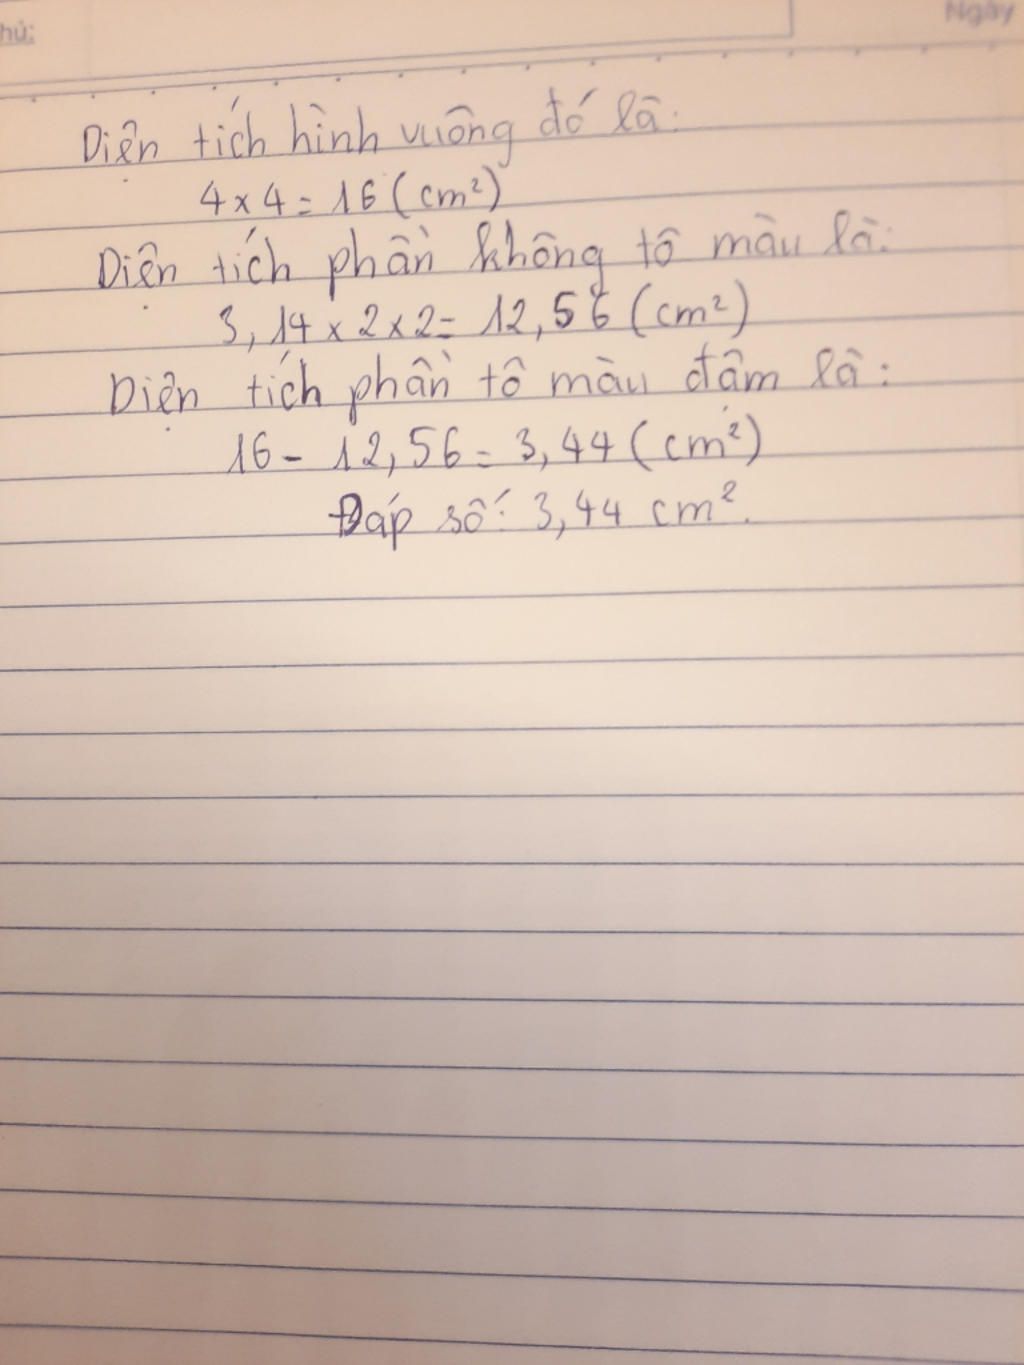 hủ:
Ngày
Diện tích hình vuông đó là:
4 x 4 = 16 (cm²)
Diện tích phần không tô màu là:
3,14 x 2 x 2 = 12,56 (cm²)
Diện tích phần tô màu đâm là:
16 - 12,56 = 3,44 (cm²)
Đáp số: 3,44 cm².